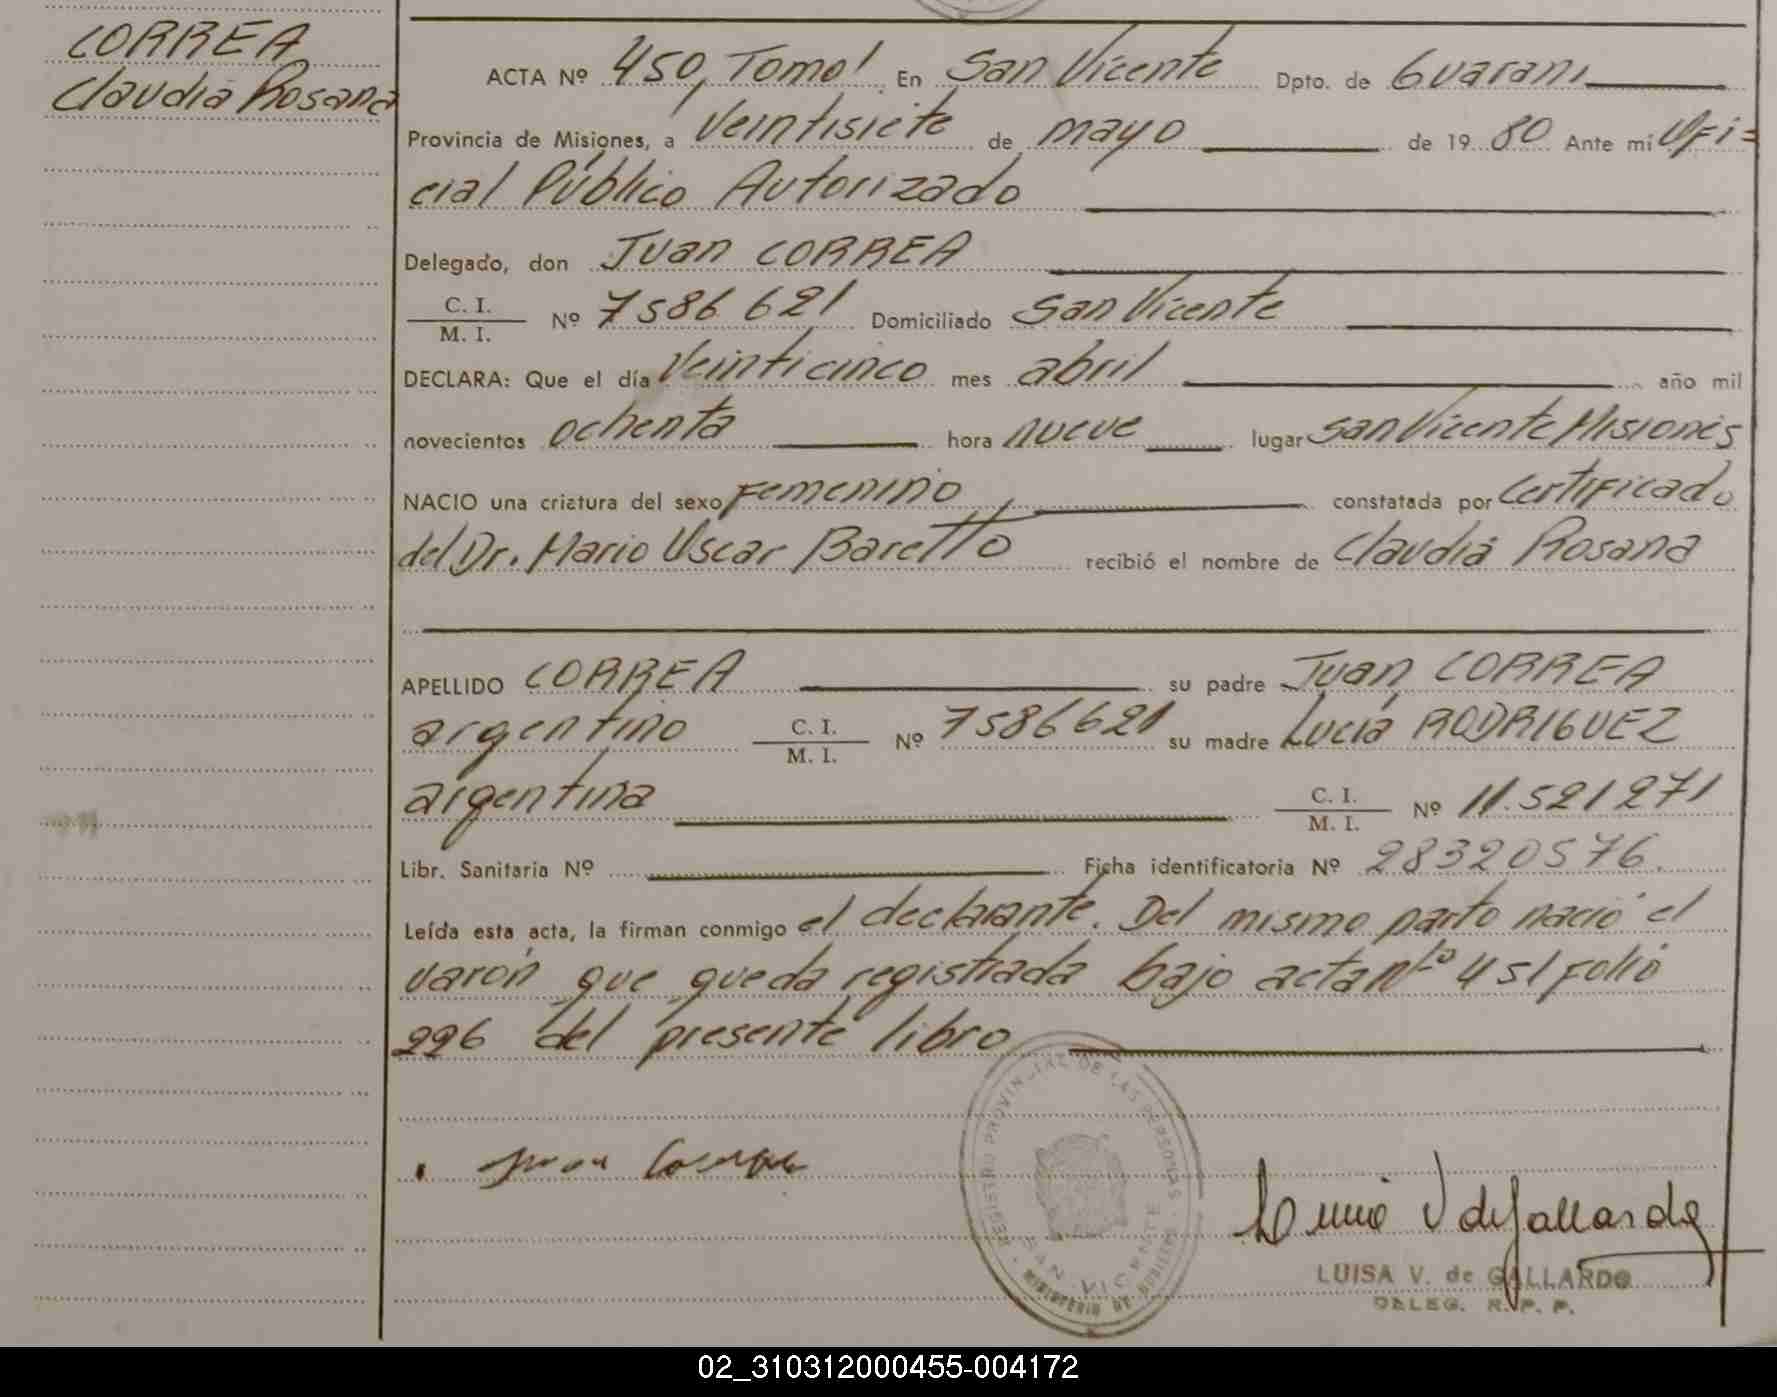 CORREA
Claudia Rosana
ACTA Nº 450, Tomo I En San Vicente Dpto. de Guarani
Provincia de Misiones, a veintisiete de mayo de 1980 Ante mí Ofi=
cial Público Autorizado
Delegado, don Juan CORREA
C. I.
M. I. Nº 7586621 Domiciliado San Vicente
DECLARA: Que el día veinticinco mes abril año mil
novecientos ochenta hora nueve lugar San Vicente Misiones
NACIO una criatura del sexo Femenino constatada por certificado
del Dr. Mario Oscar Baretto recibió el nombre de Claudia Rosana
APELLIDO CORREA su padre Juan CORREA
argentino C. I.
M. I. Nº 7586621 su madre Lucia RODRIGUEZ
argentina C. I.
M. I. Nº 11.521271
Libr. Sanitaria Nº Ficha identificatoria Nº 28320576.
Leída esta acta, la firman conmigo el declarante. Del mismo parto nació el
varón que queda registrada bajo acta nº 451 folio
226 del presente libro
REGISTRO PROVINCIAL DE LAS PERSONAS
SAN VICENTE
MINISTERIO DE GOBIERNO
Juan Correa
Luisa V de Gallardo
LUISA V. de GALLARDO
DELEG. R. P. P.
02_310312000455-004172